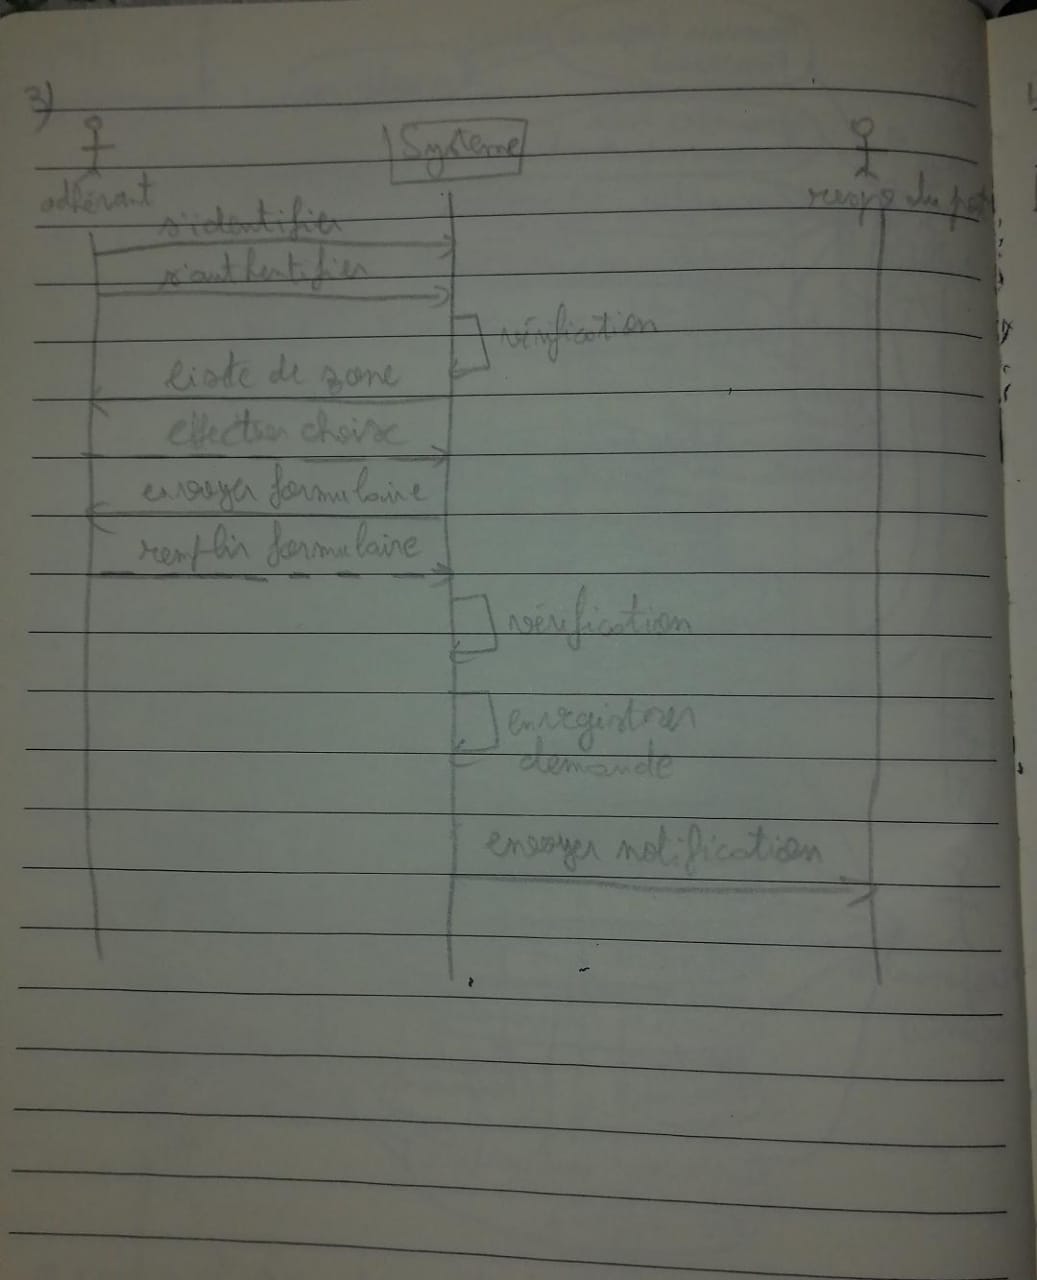 3)
Système
adhérant
resp du
s'identifier
s'authentifier
vérification
liste de zone
effectuer choix
envoyer formulaire
remplir formulaire
vérification
enregistrer
demande
envoyer notification